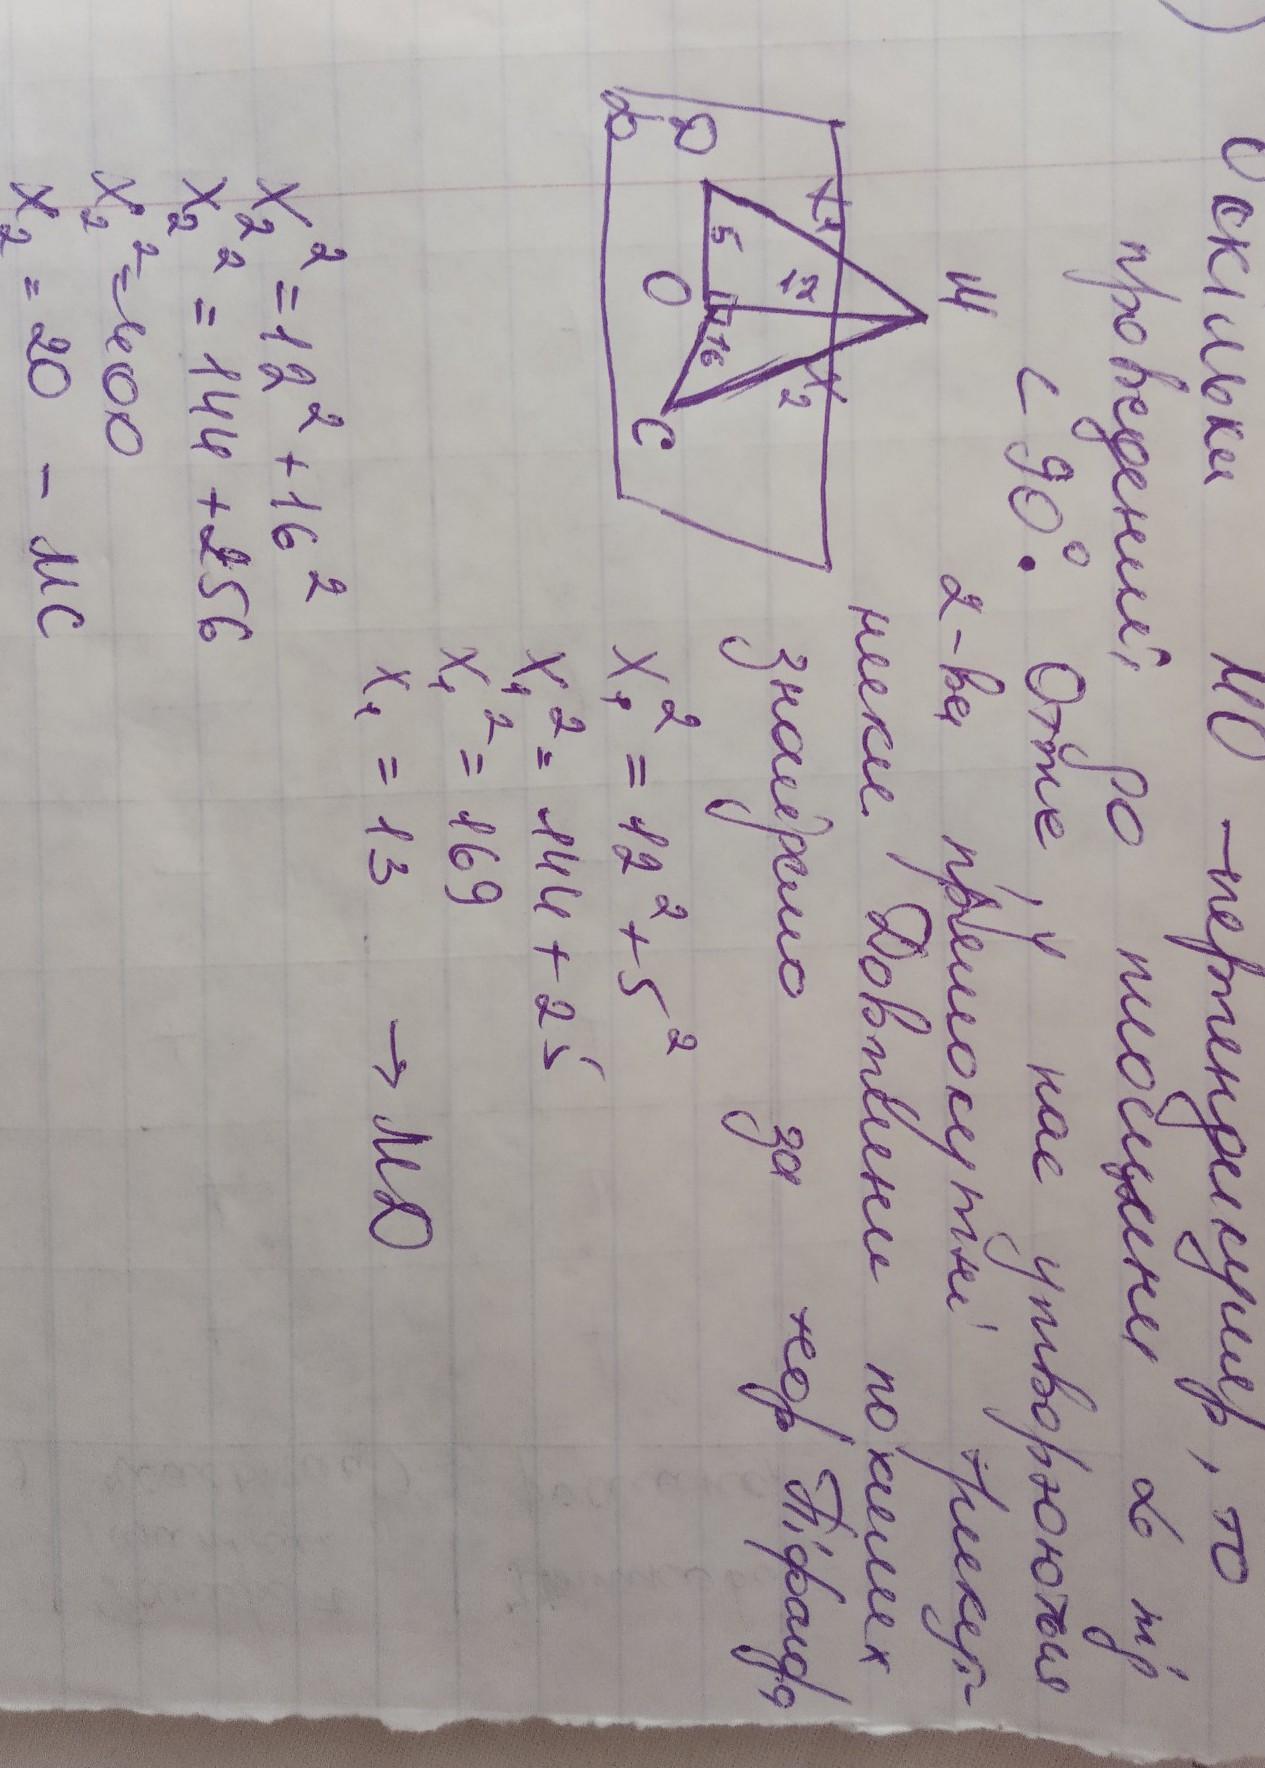 Оскільки МО – перпендикуляр, то
проведений до площини α під
∠ 90°. Отже, у нас утворюються
2-ва прямокутні трикут-
ники. Довжини похилих
знайдемо за теор Піфагора
М
X₁
X₂
12
5
16
D
O
C
α
X₁² = 12² + 5²
X₁² = 144 + 25
X₁² = 169
X₁ = 13 → МD
X₂² = 12² + 16²
X₂² = 144 + 256
X₂² = 400
X₂ = 20 – МС